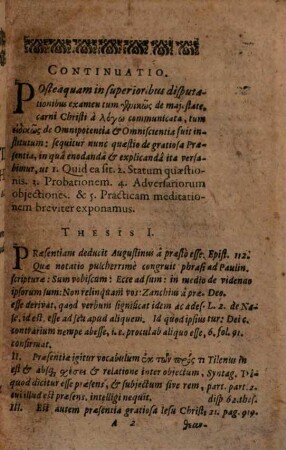 CONTINUATIO.
POsteaquam in superioribus disputa-
tionibus examen tum γενικῶς de majestate,
carni Christi à λόγῳ communicata, tum
εἰδικῶς de Omnipotentia & Omniscientia fuit in-
stitutum: sequitur nunc quæstio de gratiosa Præ-
sentia, in quâ enodandâ & explicandâ ita versa-
bimur, ut 1. Quid ea sit. 2. Statum quæstio-
nis. 3. Probationem. 4. Adversariorum
objectiones. & 5. Practicam meditatio-
nem breviter exponamus.
THESIS I.
PRæsentiam deducit Augustinus à præstò esse. Epist. 112.
Quæ notatio pulcherrimè congruit phrasi ad Paulin.
scripturæ: Sum vobiscum: Ecce adsum: in medio
ipsorum sum: Non relinquam vos: Zanchius à præ. Deo.
esse derivat, quod verbum significat idem ac ades- L. 2. de Na-
se, id est. esse ad seu apud aliquem. Id quod ipsius tur; Dei c.
contrarium nempe abesse, i.e. procul ab aliquo esse, 6, fol. 91.
confirmat.
II. Præsentiæ igitur vocabulum ἐκ τῶν πρός τι Tilenus in
est & absq; σχέσει & relatione inter objectum, Syntag.
quod dicitur esse præsens, & subjectum sive rem, part. part. 2.
cui illud est præsens, intelligi nequit. disp 62. thes.
III. Est autem præsentia gratiosa Iesu Christi 21. pag. 919.
A 2